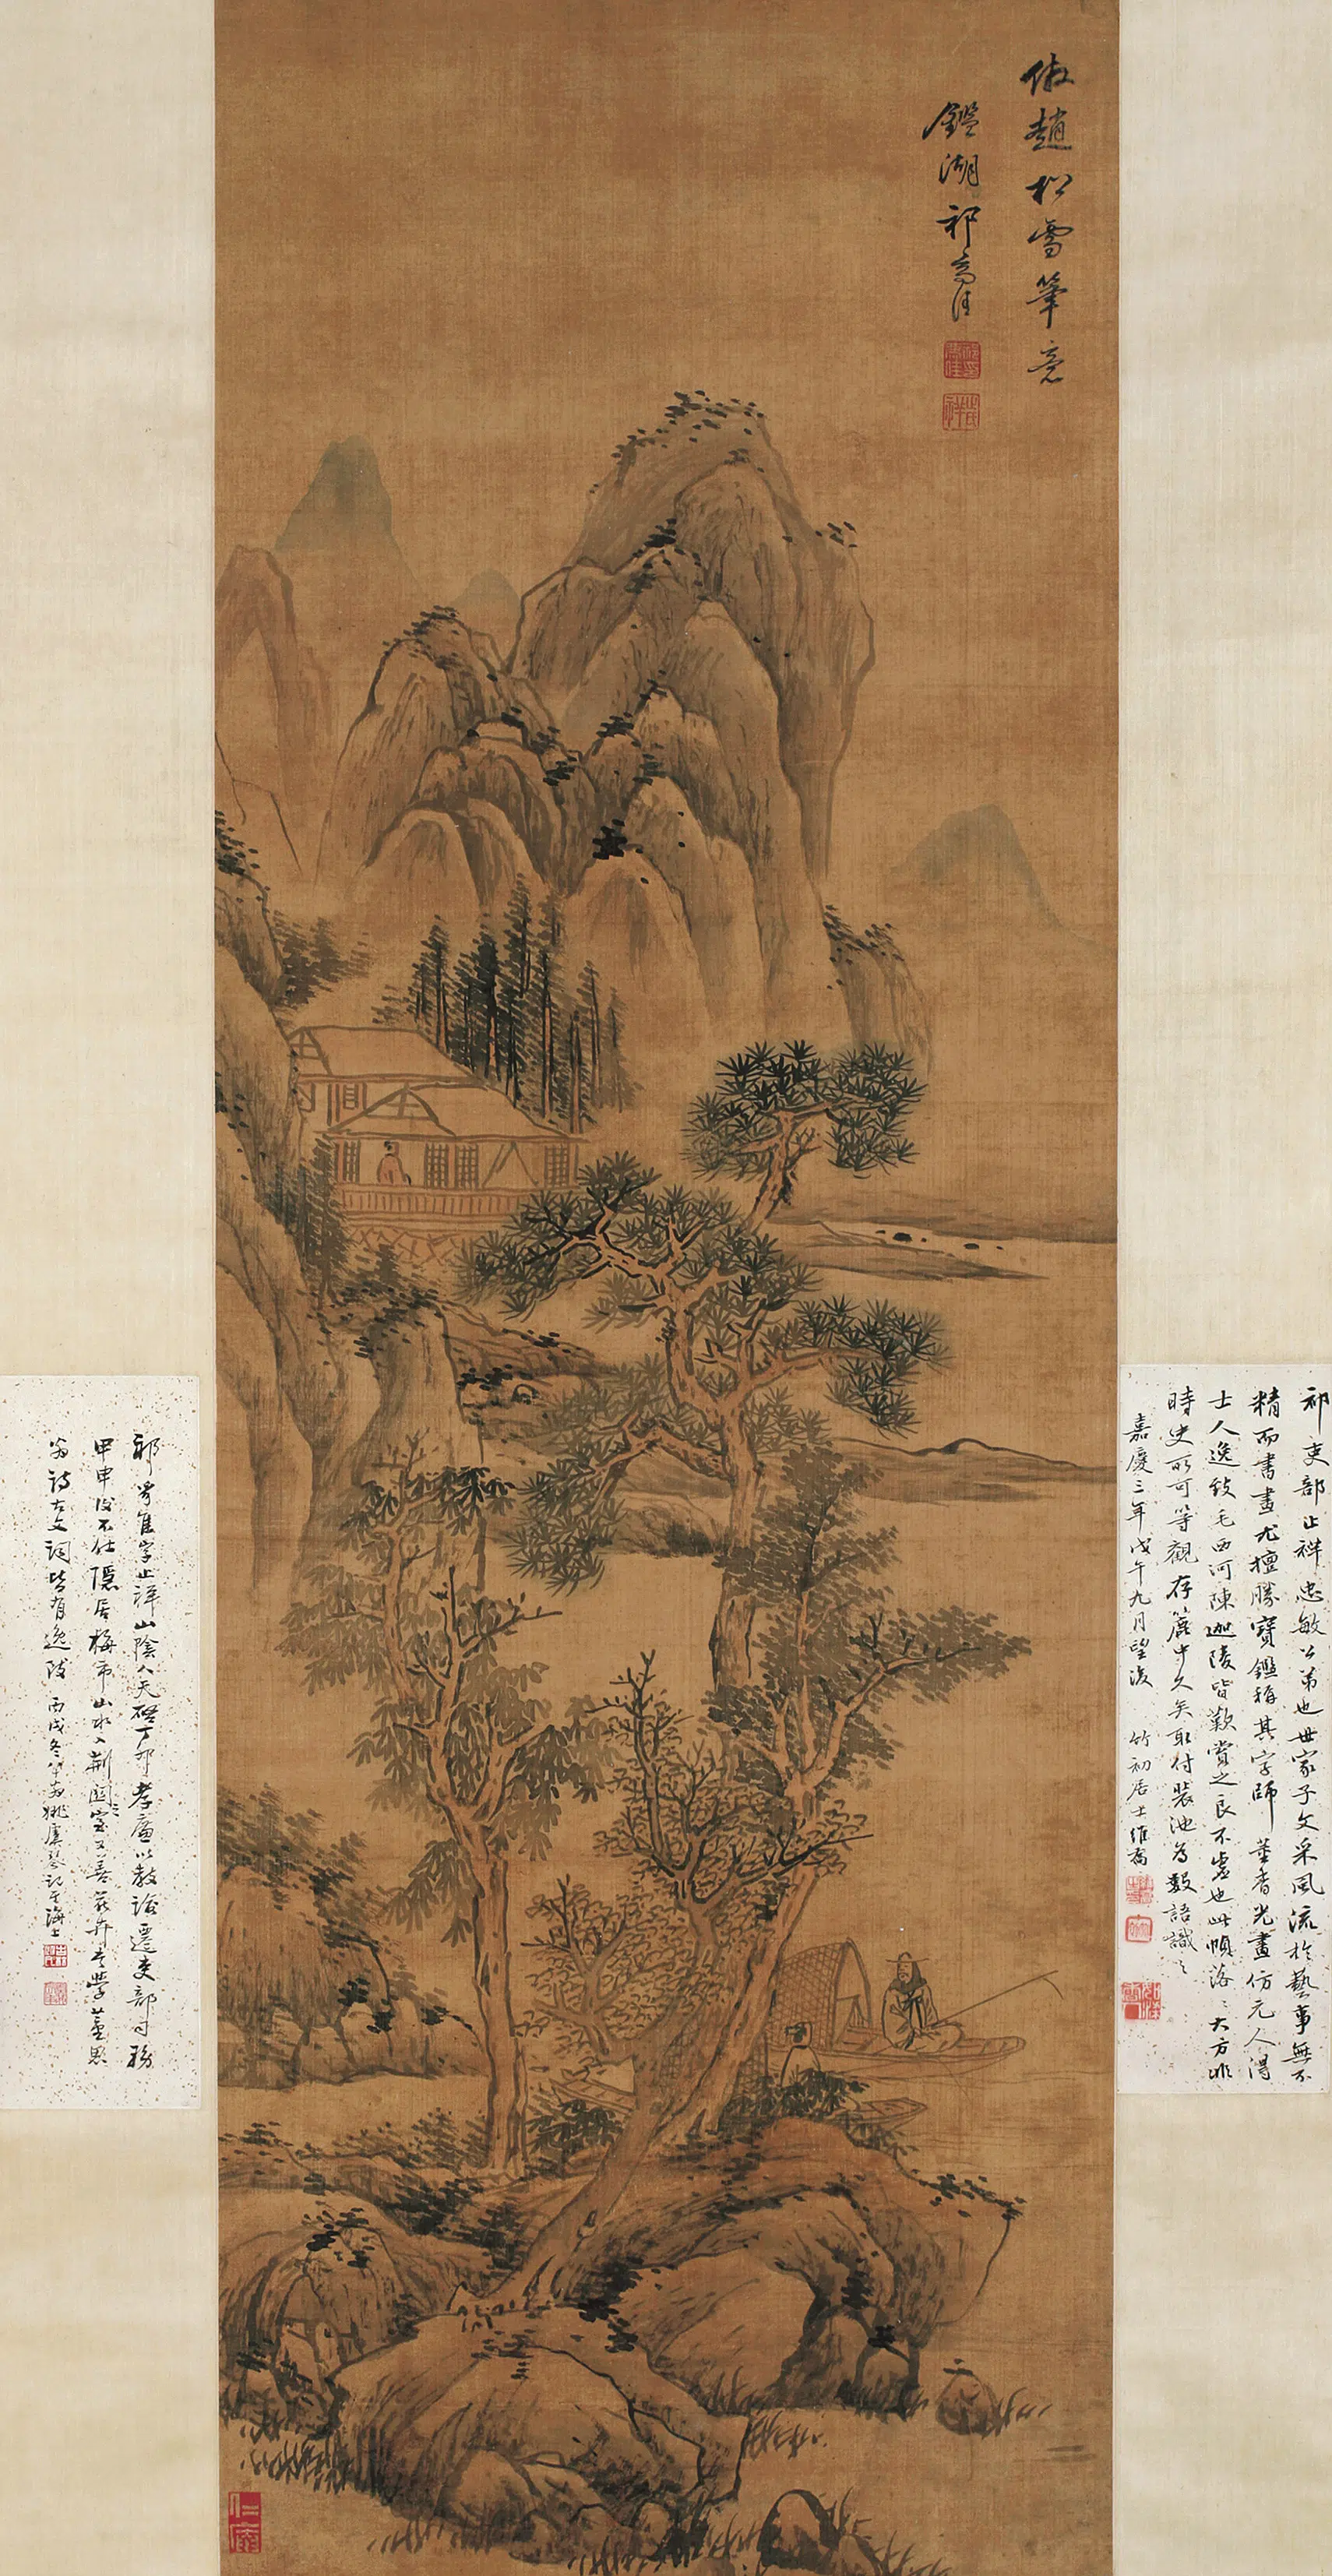 倣趙松雪筆意
鑑湖祁豸佳
祁豸佳
止祥
祁吏部止祥忠敏公弟也世家子文采風流於藝事無不
精而書畫尤擅勝寶鑑稱其字師董香光畫仿元人得
士人逸致毛西河陳迦陵皆歎賞之良不虛也此幀落〻大方非
時史所可等觀存簏中久矣取付裝池為數語識之
嘉慶三年戊午九月望後 竹初居士維喬
祁豸佳字止祥山陰人天啓丁卯孝廉以教諭遷吏部司務
甲申後不仕隱居梅市山水入荆關之室又善花卉書學董思
翁詩古文詞皆有逸致 丙戌冬 姚虞琴記于海上